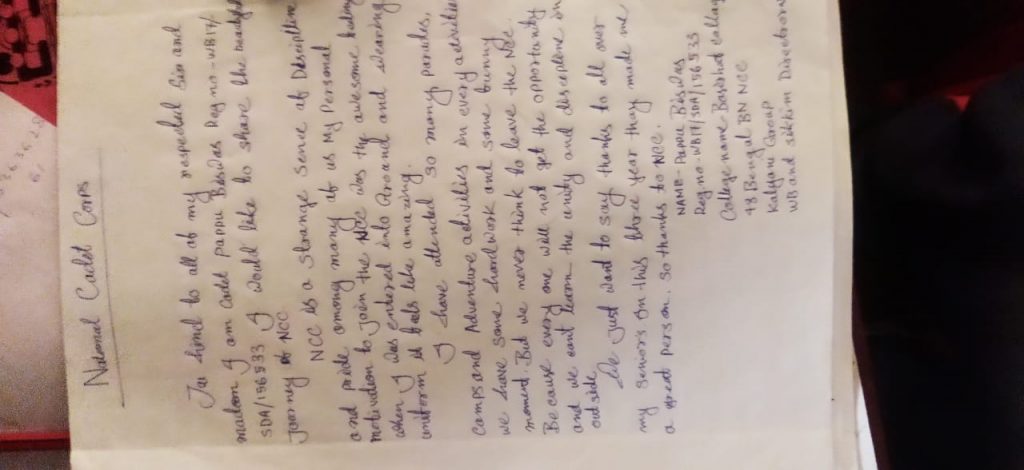 National Cadet Corps
Jai hind to all of my respected Sir and
madam I am Cadet Pappu Biswas Regno-WB17/
SDA/156533 I would like to share the beautiful
Journey of NCC
NCC is a Strange Sense of Discipline
and pride among many of us My Personal
motivation to join the NCC was the awesome feeling
when I was entered into Ground and wearing
uniform is feels like amazing.
I have attended so many parades,
Camps and Adventure activities in every activities
we have some hardwork and some funny
moment. But we never think to leave the NCC.
Because every one will not get the opportunity
and we cant learn the unity and discipline in
outside.
So Just want to say thanks to all over
my Seniors On this three year they made me
a great person. So thanks to NCC.
NAME- Pappu Biswas
Regno-WB17/SDA/156533
College name Basirhat College
48 Bengal BN NCC
Kalyani Group
WB and sikkim Directorate